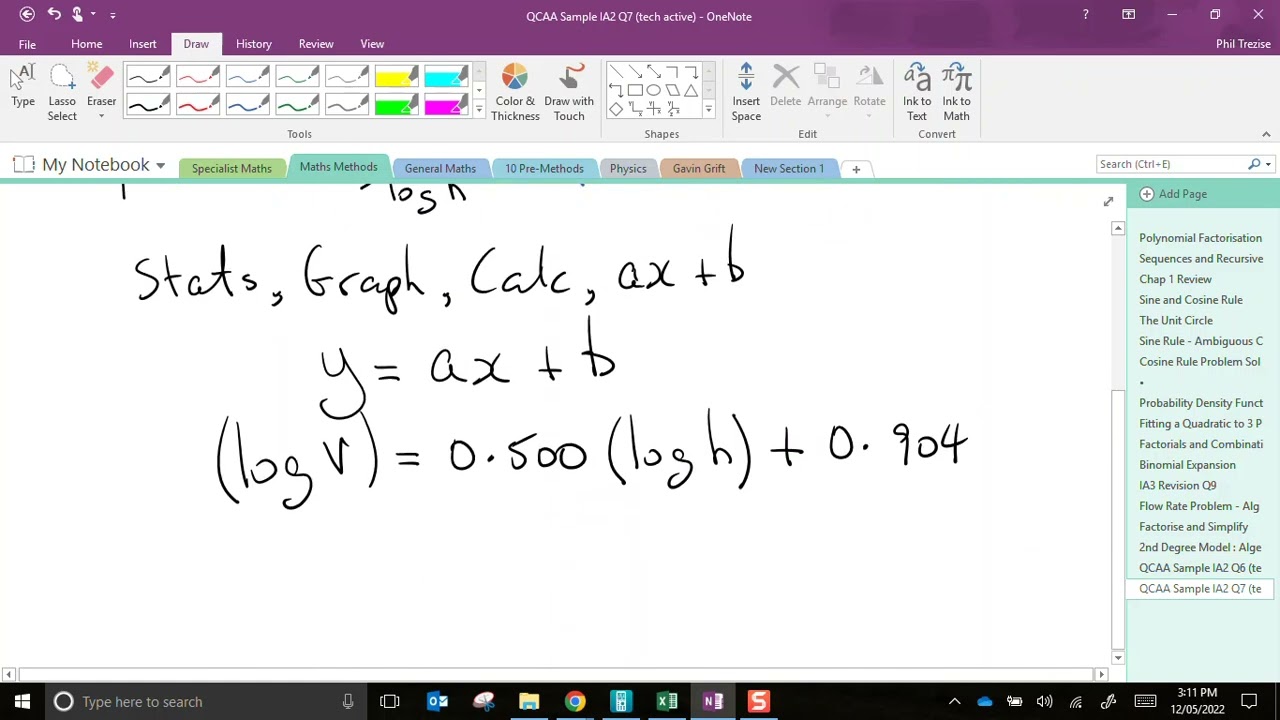 QCAA Sample IA2 Q7 (tech active) - OneNote
?
File Home Insert Draw History Review View
Phil Trezise
Type Lasso Select Eraser
Color & Thickness Draw with Touch
Insert Space Delete Arrange Rotate
Ink to Text Ink to Math
Tools Shapes Edit Convert
My Notebook Specialist Maths Maths Methods General Maths 10 Pre-Methods Physics Gavin Grift New Section 1
Search (Ctrl+E)
Add Page
log h
Stats, Graph, Calc, ax + b
y = ax + b
(log V) = 0.500 (log h) + 0.904
Polynomial Factorisation
Sequences and Recursive
Chap 1 Review
Sine and Cosine Rule
The Unit Circle
Sine Rule - Ambiguous C
Cosine Rule Problem Sol
Probability Density Funct
Fitting a Quadratic to 3 P
Factorials and Combinati
Binomial Expansion
IA3 Revision Q9
Flow Rate Problem - Alg
Factorise and Simplify
2nd Degree Model : Alge
QCAA Sample IA2 Q6 (te
QCAA Sample IA2 Q7 (te
Type here to search
3:11 PM
12/05/2022